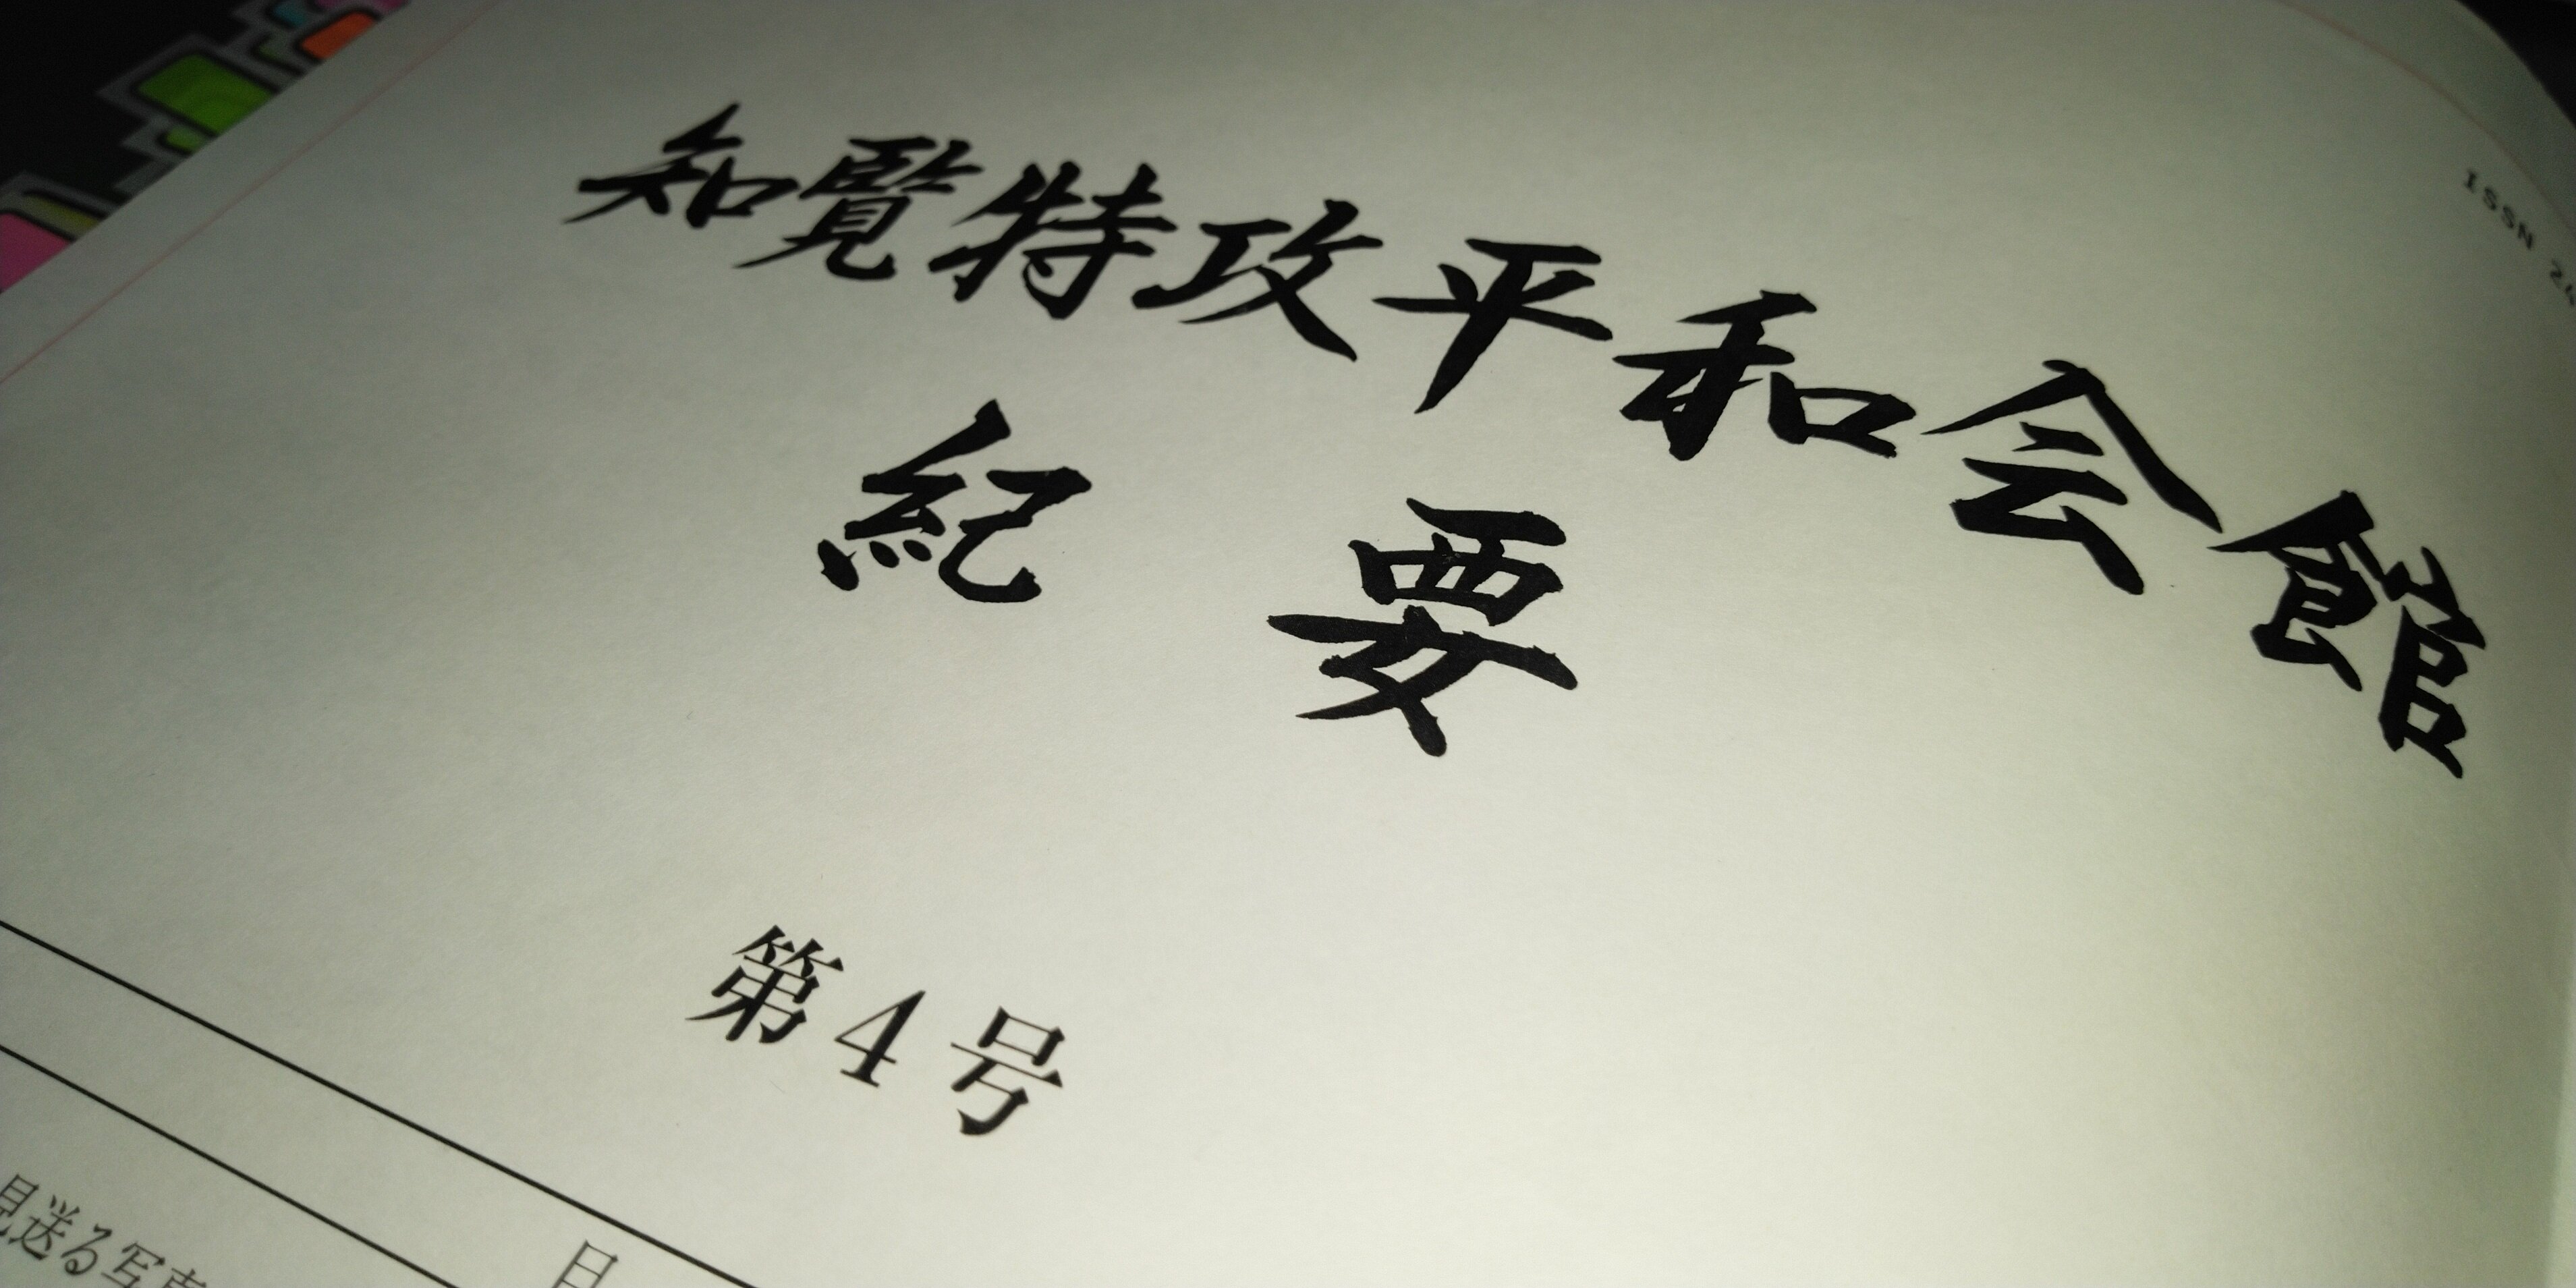 ISSN 24
知覧特攻平和会館
紀要
第4号
目
見送る写真